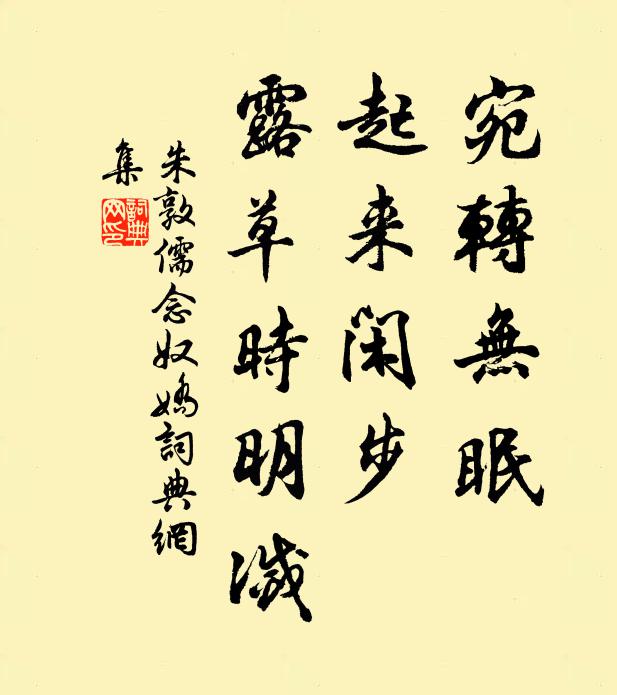 宛轉無眠
起来闲步
露草時明滅
朱敦儒念奴嬌詞典網
集
詞典
网印